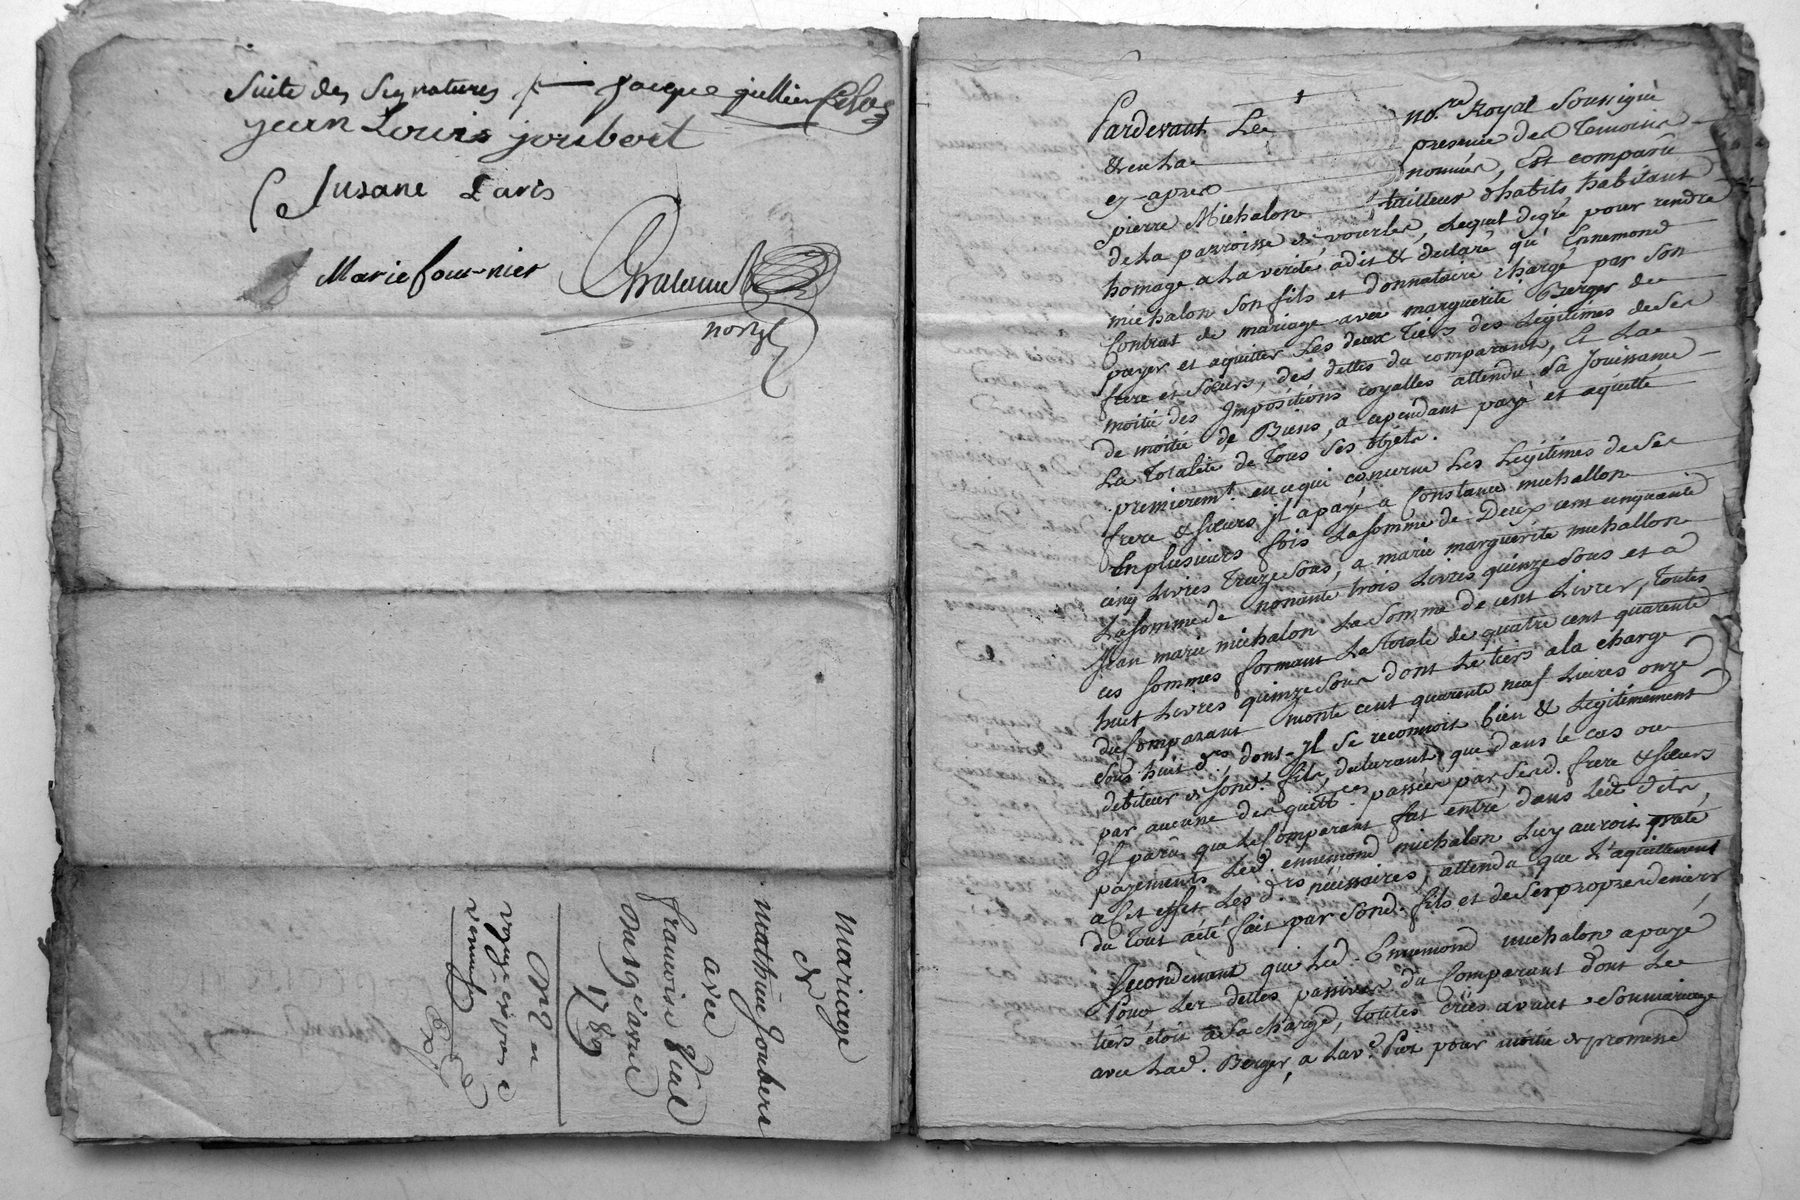 Suite des Signatures Jacque jullien
jean Louis joubert
Susane Paris
Marie fournier Chaland
nore
mariage
de
mathieu Joubert
avec
francoise Vial
du 19 avril
1789
Pardevant Le no.re Royal Soussigné
& en La presence des Temoins
cy-apres nommés, Est comparu
pierre Michalon tailleur d'habits, habitant
de La parroisse de vourles, Lequel degré pour rendre
homage a La verité, a dit & declaré qu'Ennemond
michalon son fils et donnataire chargé par son
Contrat de mariage avec marguerité Berger de
payer et aquitter Les deux tiers des Legitimes de Ses
frere et Sœurs, des dettes du comparant, et La
moitié des Impositions royalles attendu Sa Jouissance
de moitié de Biens, a cependant payé et aquitté
La Totalité de Tous Ses objets.
premierem.t en ce qui concerne Les Legitimes de Ses
frere & Sœurs il a payé a Constance michallon
En plusieurs fois La somme de Deux cent cinquante
cinq Livres Treize Sous, a marie marguerite michallon
La somme de nonante trois Livres quinze Sous et a
Jean marie michalon La Somme de cent Livres, toutes
ces Sommes formant La totale de quatre cent quarente
huit Livres quinze Sous dont Le tiers a la charge
du Comparant monte cent quarente neuf Livres onze
Sous huit d.rs, dont il Se reconnoit bien & Legitimement
debiteur de Sond. fils, declarant que dans le cas ou
par aucune des quitt.ces passées par Sesd. frere & Sœurs
Il paru que Le Comparant fut entré dans Led. dits
payements Led. ennemond michalon Luy auroit preté
a Cet effet Les d.rs nécessaires, attendu que L'aquittement
du tout a été fait par Sond. fils et de Ses propres deniers
Secondement que Led. Ennemond michalon a payé
Pour Les dettes passives du Comparant dont Le
tiers étoit a La charge, toutes crées avant Son mariage
avec Lad. Berger, a Lav.e Piot pour moitié de promesse